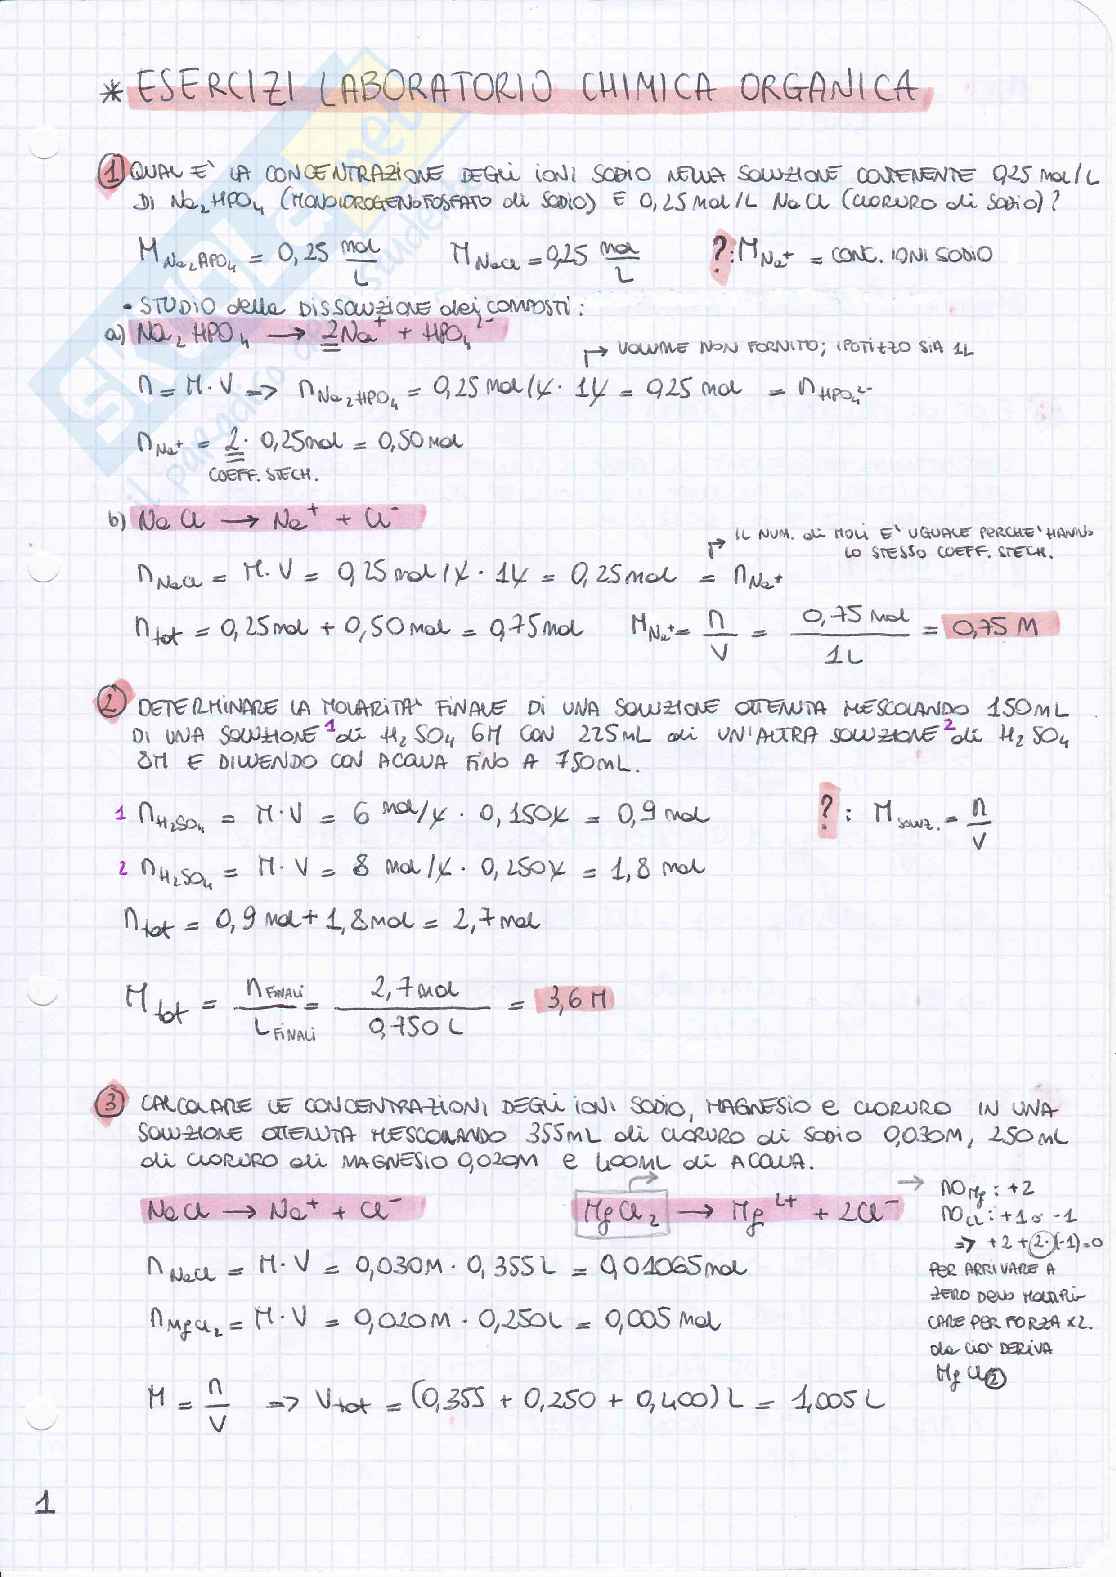 * ESERCIZI LABORATORIO CHIMICA ORGANICA
① QUAL E' LA CONCENTRAZIONE DEGLI IONI SODIO NELLA SOLUZIONE CONTENENTE 0,25 mol/L
DI Na₂HPO₄ (MONOIDROGENOFOSFATO di SODIO) E 0,25 mol/L NaCl (CLORURO di SODIO)?
M Na₂HPO₄ = 0,25 mol/L M NaCl = 0,25 mol/L ?: M Na⁺ = CONC. IONI SODIO
- STUDIO della DISSOLUZIONE dei COMPOSTI:
a) Na₂HPO₄ → 2Na⁺ + HPO₄²⁻
↱ VOLUME NON FORNITO; IPOTIZZO SIA 1L
n = M·V => n Na₂HPO₄ = 0,25 mol/L · 1L = 0,25 mol = n HPO₄²⁻
n Na⁺ = 2 · 0,25 mol = 0,50 mol
COEFF. STECH.
b) NaCl → Na⁺ + Cl⁻
↱ IL NUM. di MOLI E' UGUALE PERCHE' HANNO
LO STESSO COEFF. STECH.
n NaCl = M·V = 0,25 mol/L · 1L = 0,25 mol = n Na⁺
n tot = 0,25 mol + 0,50 mol = 0,75 mol M Na⁺ = n/V = 0,75 mol/1L = 0,75 M
② DETERMINARE LA MOLARITA' FINALE DI UNA SOLUZIONE OTTENUTA MESCOLANDO 150mL
DI UNA SOLUZIONE¹ di H₂SO₄ 6M CON 225mL di UN'ALTRA SOLUZIONE² di H₂SO₄
8M E DILUENDO CON ACQUA FINO A 750mL.
1 n H₂SO₄ = M·V = 6 mol/L · 0,150L = 0,9 mol ?: M soluz. = n/V
2 n H₂SO₄ = M·V = 8 mol/L · 0,250L = 1,8 mol
n tot = 0,9 mol + 1,8 mol = 2,7 mol
M tot = n FINALI / L FINALI = 2,7 mol / 0,750 L = 3,6 M
③ CALCOLARE LE CONCENTRAZIONI DEGLI IONI SODIO, MAGNESIO e CLORURO IN UNA
SOLUZIONE OTTENUTA MESCOLANDO 355mL di CLORURO di SODIO 0,030M, 250mL
di CLORURO di MAGNESIO 0,020M e 400mL di ACQUA.
NaCl → Na⁺ + Cl⁻ MgCl₂ → Mg²⁺ + 2Cl⁻
→ NO Mg: +2
NO Cl: +1 o -1
=> +2 + 2·(-1) = 0
PER ARRIVARE A
ZERO DEVO MOLTIPLI-
CARE PER FORZA x2.
da CIO' DERIVA
MgCl₂
n NaCl = M·V = 0,030M · 0,355L = 0,01065 mol
n MgCl₂ = M·V = 0,020M · 0,250L = 0,005 mol
M = n/V => V tot = (0,355 + 0,250 + 0,400) L = 1,005 L
1